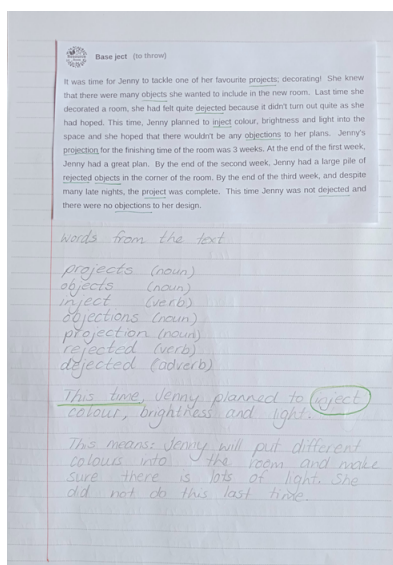 Base ject (to throw)
It was time for Jenny to tackle one of her favourite projects; decorating! She knew
that there were many objects she wanted to include in the new room. Last time she
decorated a room, she had felt quite dejected because it didn't turn out quite as she
had hoped. This time, Jenny planned to inject colour, brightness and light into the
space and she hoped that there wouldn't be any objections to her plans. Jenny's
projection for the finishing time of the room was 3 weeks. At the end of the first week,
Jenny had a great plan. By the end of the second week, Jenny had a large pile of
rejected objects in the corner of the room. By the end of the third week, and despite
many late nights, the project was complete. This time Jenny was not dejected and
there were no objections to her design.
words from the text
projects (noun)
objects (noun)
inject (verb)
objections (noun)
projection (noun)
rejected (verb)
dejected (adverb)
This time, Jenny planned to inject
colour, brightness and light.
This means: Jenny will put different
colours into the room and make
sure there is lots of light. She
did not do this last time.